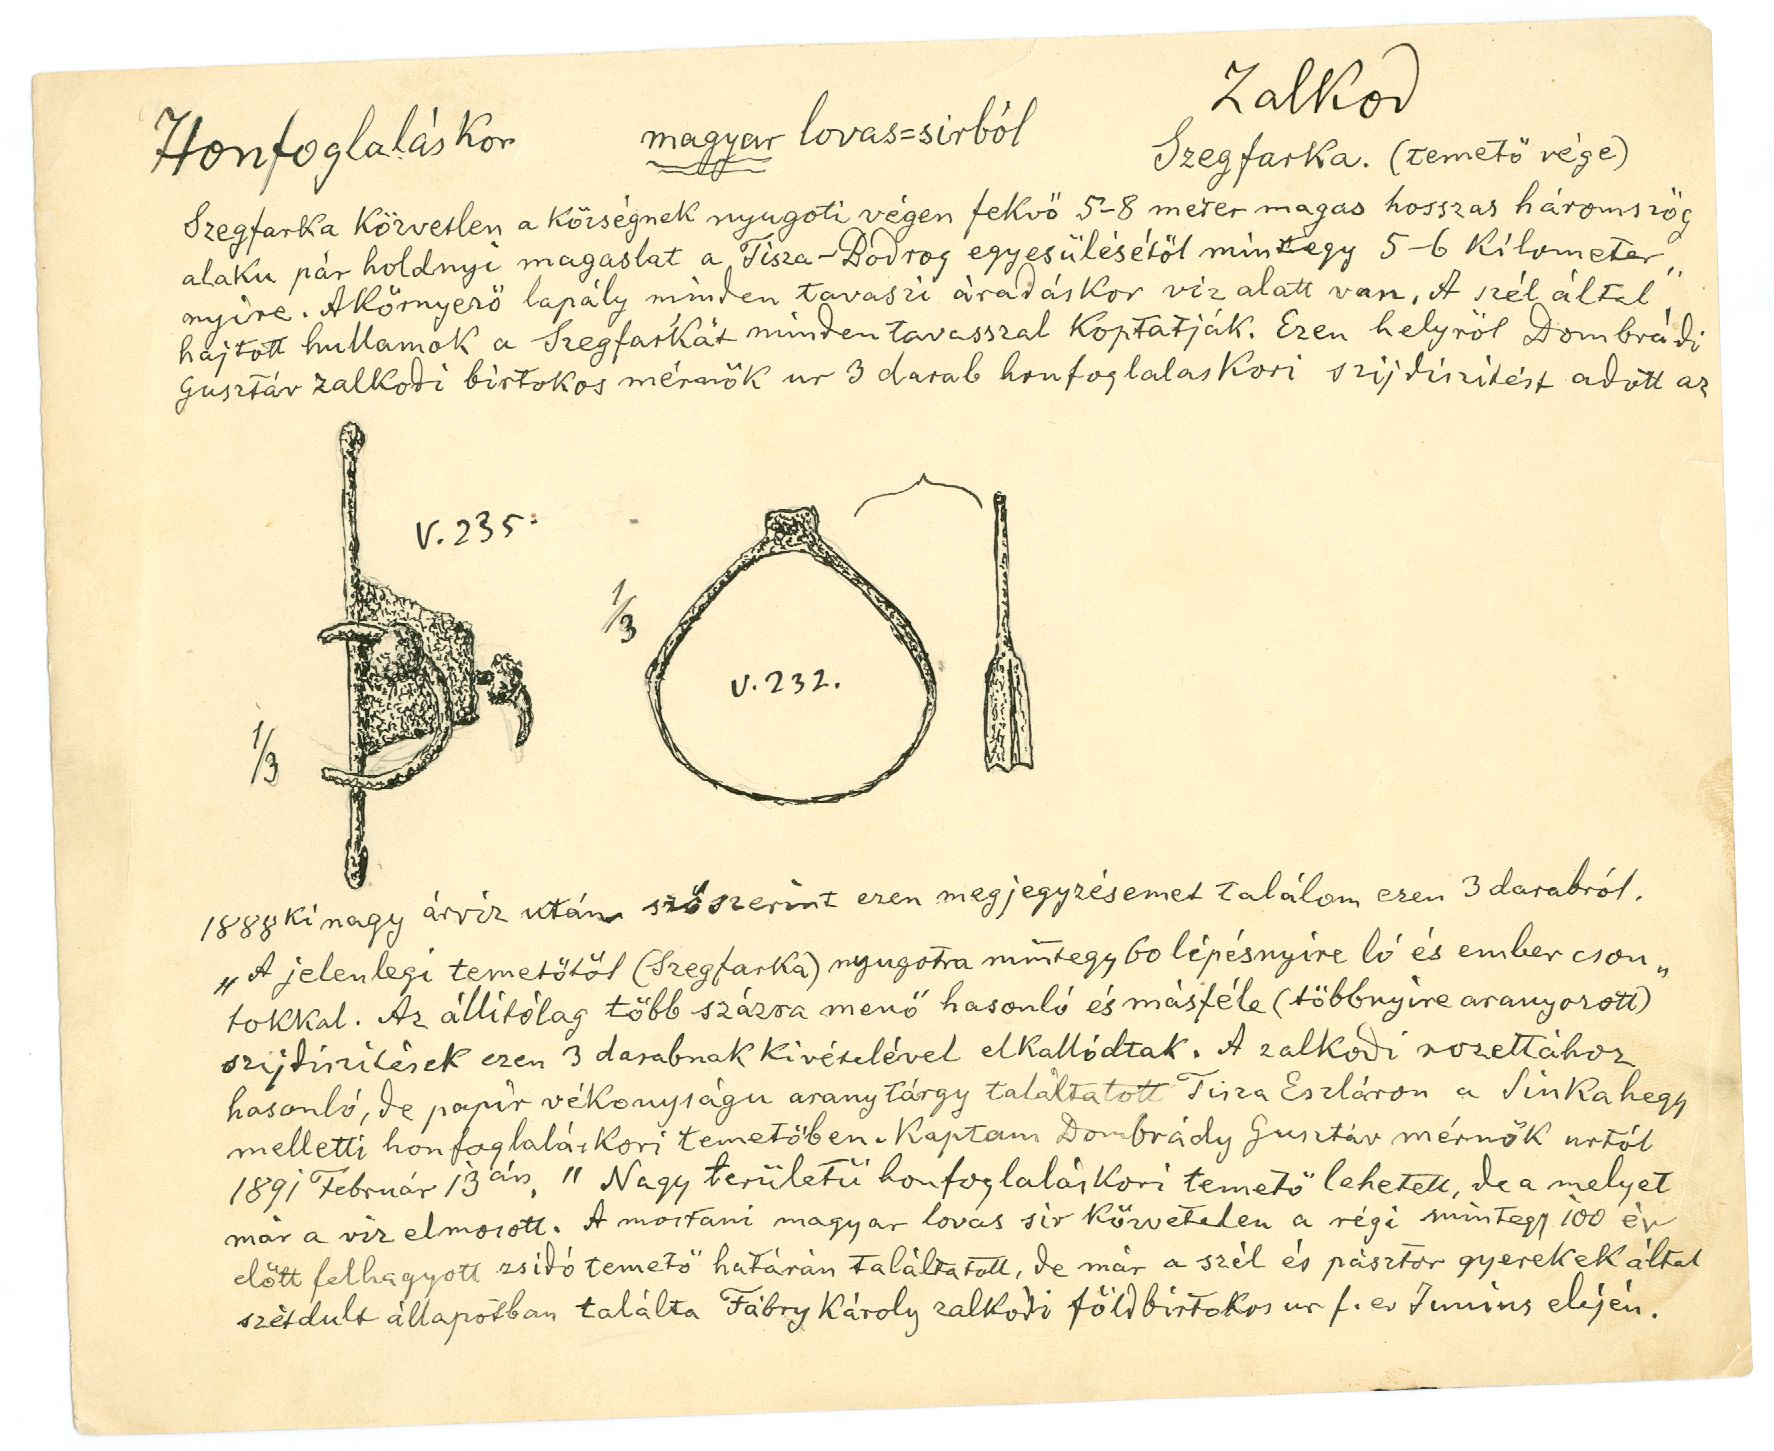 Honfoglaláskor magyar lovas=sirból Zalkod
Szegfarka. (temető vége)
Szegfarka közvetlen a községnek nyugoti végen fekvö 5-8 meter magas hosszas háromszög
alaku pár holdnyi magaslat a Tisza-Bodrog egyesülésétöl mintegy 5-6 kilometer„
nyire. A környezö lapály minden tavaszi áradáskor viz alatt van. A szél által
hajtott hullamok a Szegfarkát minden tavasszal koptatják. Ezen helyröl Dombrádi
Gusztáv zalkodi birtokos mérnök ur 3 darab honfoglalaskori szijdiszitést adott az
V. 235.
1/3
1/3
V. 232.
1888 ki nagy árviz után szószerint ezen megjegyzésemet találom ezen 3 darabról.
„A jelenlegi temetötöl (Szegfarka) nyugotra mintegy 60 lépésnyire ló és ember cson„
tokkal. Az állitólag több százra menö hasonló és másféle (többnyire aranyozott)
szijdiszitések ezen 3 darabnak kivételével elkallódtak. A zalkodi rozettához
hasonló, de papir vékonyságu aranytárgy találtatott Tisza Eszláron a Sinkahegy
melletti honfoglaláskori temetöben. Kaptam Dombrády Gusztáv mérnök urtól
1891 Február 13 án." Nagy területü honfoglaláskori temetö lehetett, de a melyet
már a viz elmosott. A mostani magyar lovas sir közvetelen a régi mintegy 100 év
elött felhagyott zsidó temetö határán találtatott, de már a szél és pásztor gyerekek által
szétdult állapotban találta Fábry Károly zalkodi földbirtokos ur f. ev Junius elején.